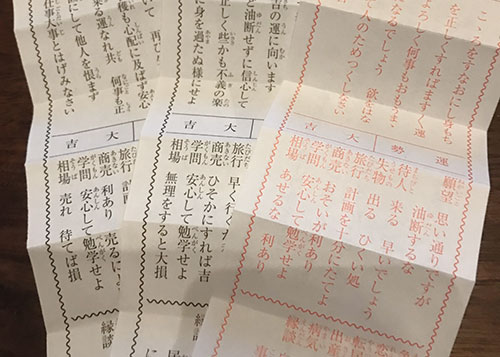 を正しくすればますます運
何事もおもいまま
なるでしょう 欲を
て人のためつくしなさい
運勢
大吉
願望 思い通りですが
油断するな
待人 来る 早いでしょう
失物 出る ひくい処
旅行 計画を十分にたてよ
商売 おそいが利あり
学問 安心して勉学せよ
相場 あせるな 利あり
転居
出産
病気
縁談
吉の運に向います
と油断せずに信心して
正しく些かも不義の楽
に身を過たぬ様にせよ
大吉
旅行 早く行く
商売 ひそかにすれば吉
学問 安心して勉学せよ
相場 無理をすると大損
いて 再び
来る運なれ共
後も心配に及ばず安心
何事も正
にして他人を恨まず
仕事とはげみなさい
大吉
旅行 計画
商売 利あり 売るに
学問 安心して勉学せよ
相場 売れ 待てば損
縁談